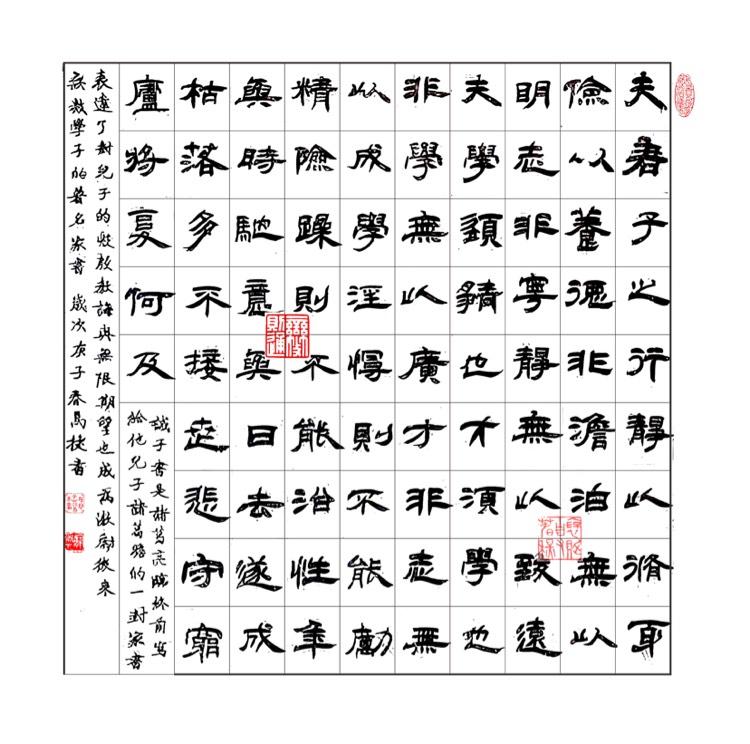 夫君子之行靜以脩身
儉以養德非澹泊無以
明志非寧靜無以致遠
夫學須靜也才須學也
非學無以廣才非志無
以成學淫慢則不能勵
精險躁則不能治性年
與時馳意與日去遂成
枯落多不接世悲守窮
廬將复何及
誡子書是諸葛亮臨終前寫
給他兒子諸葛瞻的一封家書
表達了對兒子的教誨與無限期望也成為激勵後來
學子的著名家書 歲次庚子春馬捷書